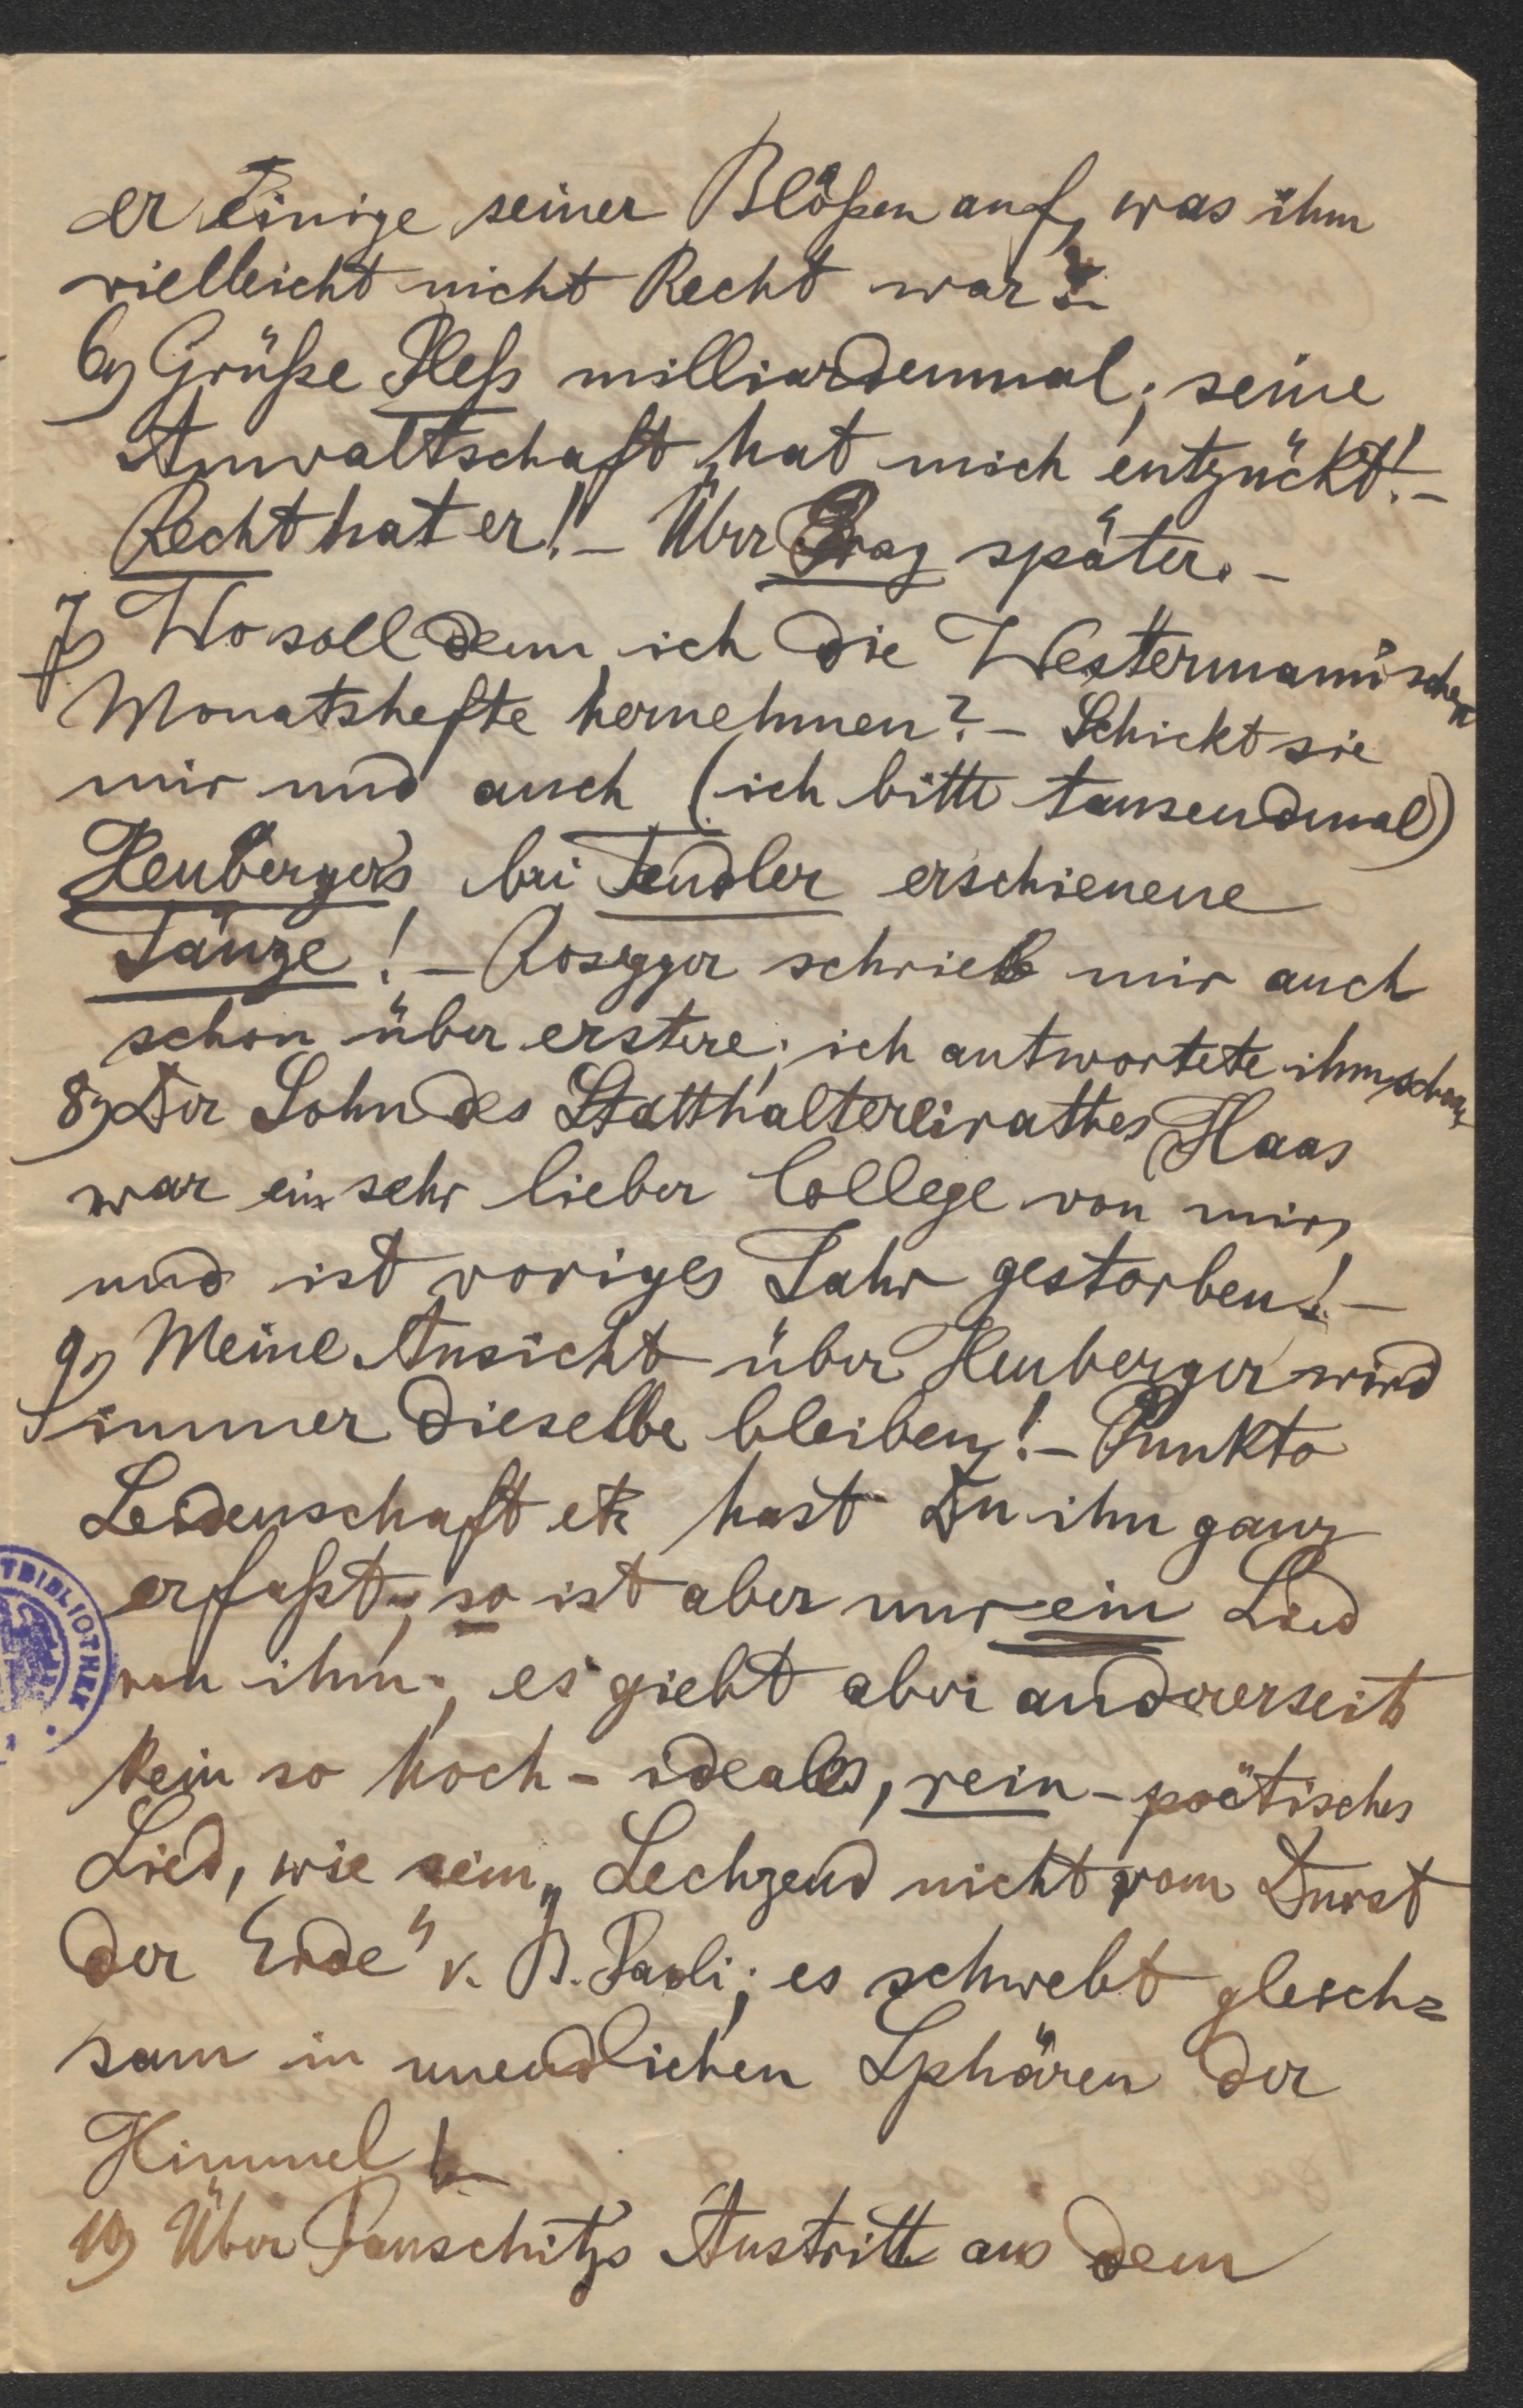 er einige seiner Blößen auf, was ihm
vielleicht nicht Recht war!–
6) Grüße Pleß milliardenmal; seine
Anwaltschaft hat mich entzückt!–
Recht hat er!– Über Prag später.–
7) Wo soll denn ich die Westermann'schen
Monatshefte hernehmen?– Schickt sie
mir und auch (ich bitte tausendmal)
Heuberger's bei Tendler erschienene
Tänze!– Rosegger schrieb mir auch
schon über erstere; ich antwortete ihm schon
8) Der Sohn des Statthaltereirathes Haas
war ein sehr lieber College von mir,
und ist voriges Jahr gestorben!–
9) Meine Ansicht über Heuberger wird
immer dieselbe bleiben!– Punkto
Leidenschaft etc hast Du ihn ganz
erfaßt, so ist aber nur ein Lied
von ihm; es giebt aber andererseits
kein so hoch-ideales, rein-poëtisches
Lied, wie sein „Lechzend nicht vom Durst
der Erde" v. B. Paoli; es schwebt gleich=
sam in unendlichen Sphären der
Himmel!–
10) Über Austritt aus dem
TBIBLIOTHEK